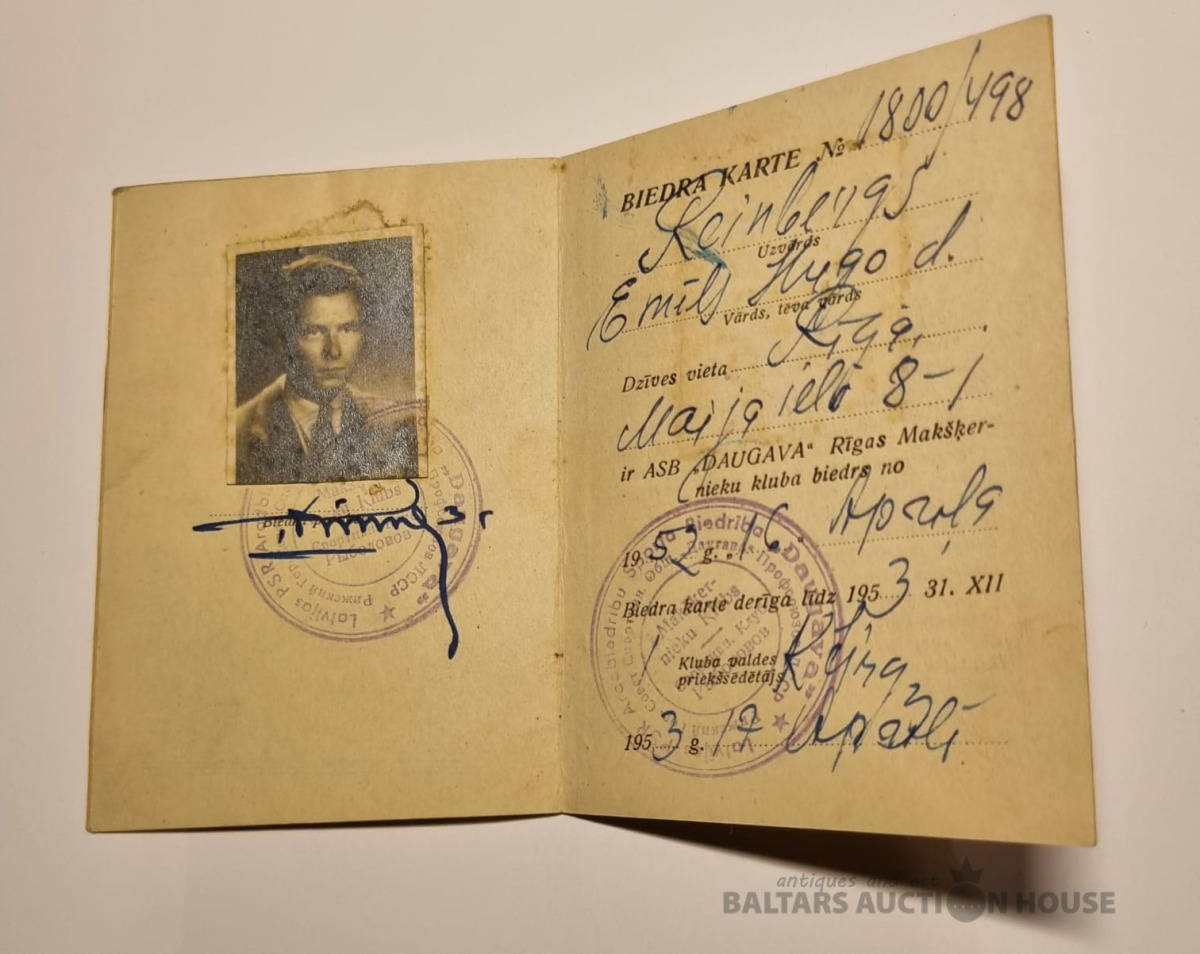 BIEDRA KARTE № 1800/498
Reinbergs
Uzvārds
Emīls Hugo d.
Vārds, tēva vārds
Dzīves vieta Rīgā,
Maija ielā 8-1
ir ASB „DAUGAVA" Rīgas Makšķer-
nieku kluba biedrs no
1952 g. „16." Aprīļa
Biedra karte derīga līdz 1953 31. XII
Kluba valdes
priekšsēdētājs
1953 g. 17 Aprīlī
Latvijas PSR Arodbiedrību Sporta Biedrība «Daugava»
Makšķer-
nieku Klubs
Рыболовов
antiques and art
BALTARS AUCTION HOUSE